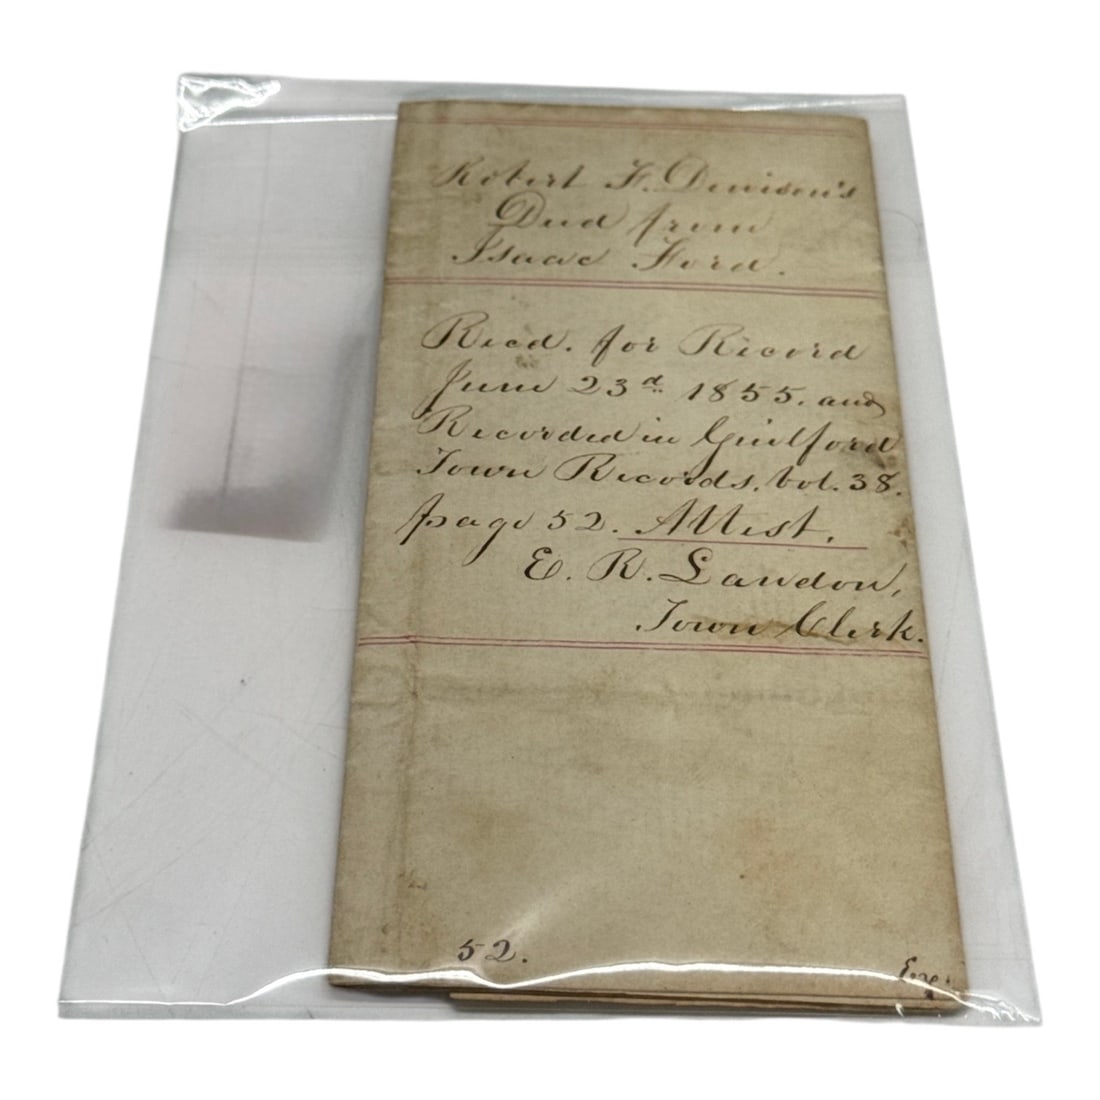 Robert F. Denison's
Deed from
Isaac Ford.
Recd. for Record
June 23d 1855. and
Recorded in Guilford
Town Records, Vol. 38.
page 52. Attest,
E. R. Landon,
Town Clerk.
52.